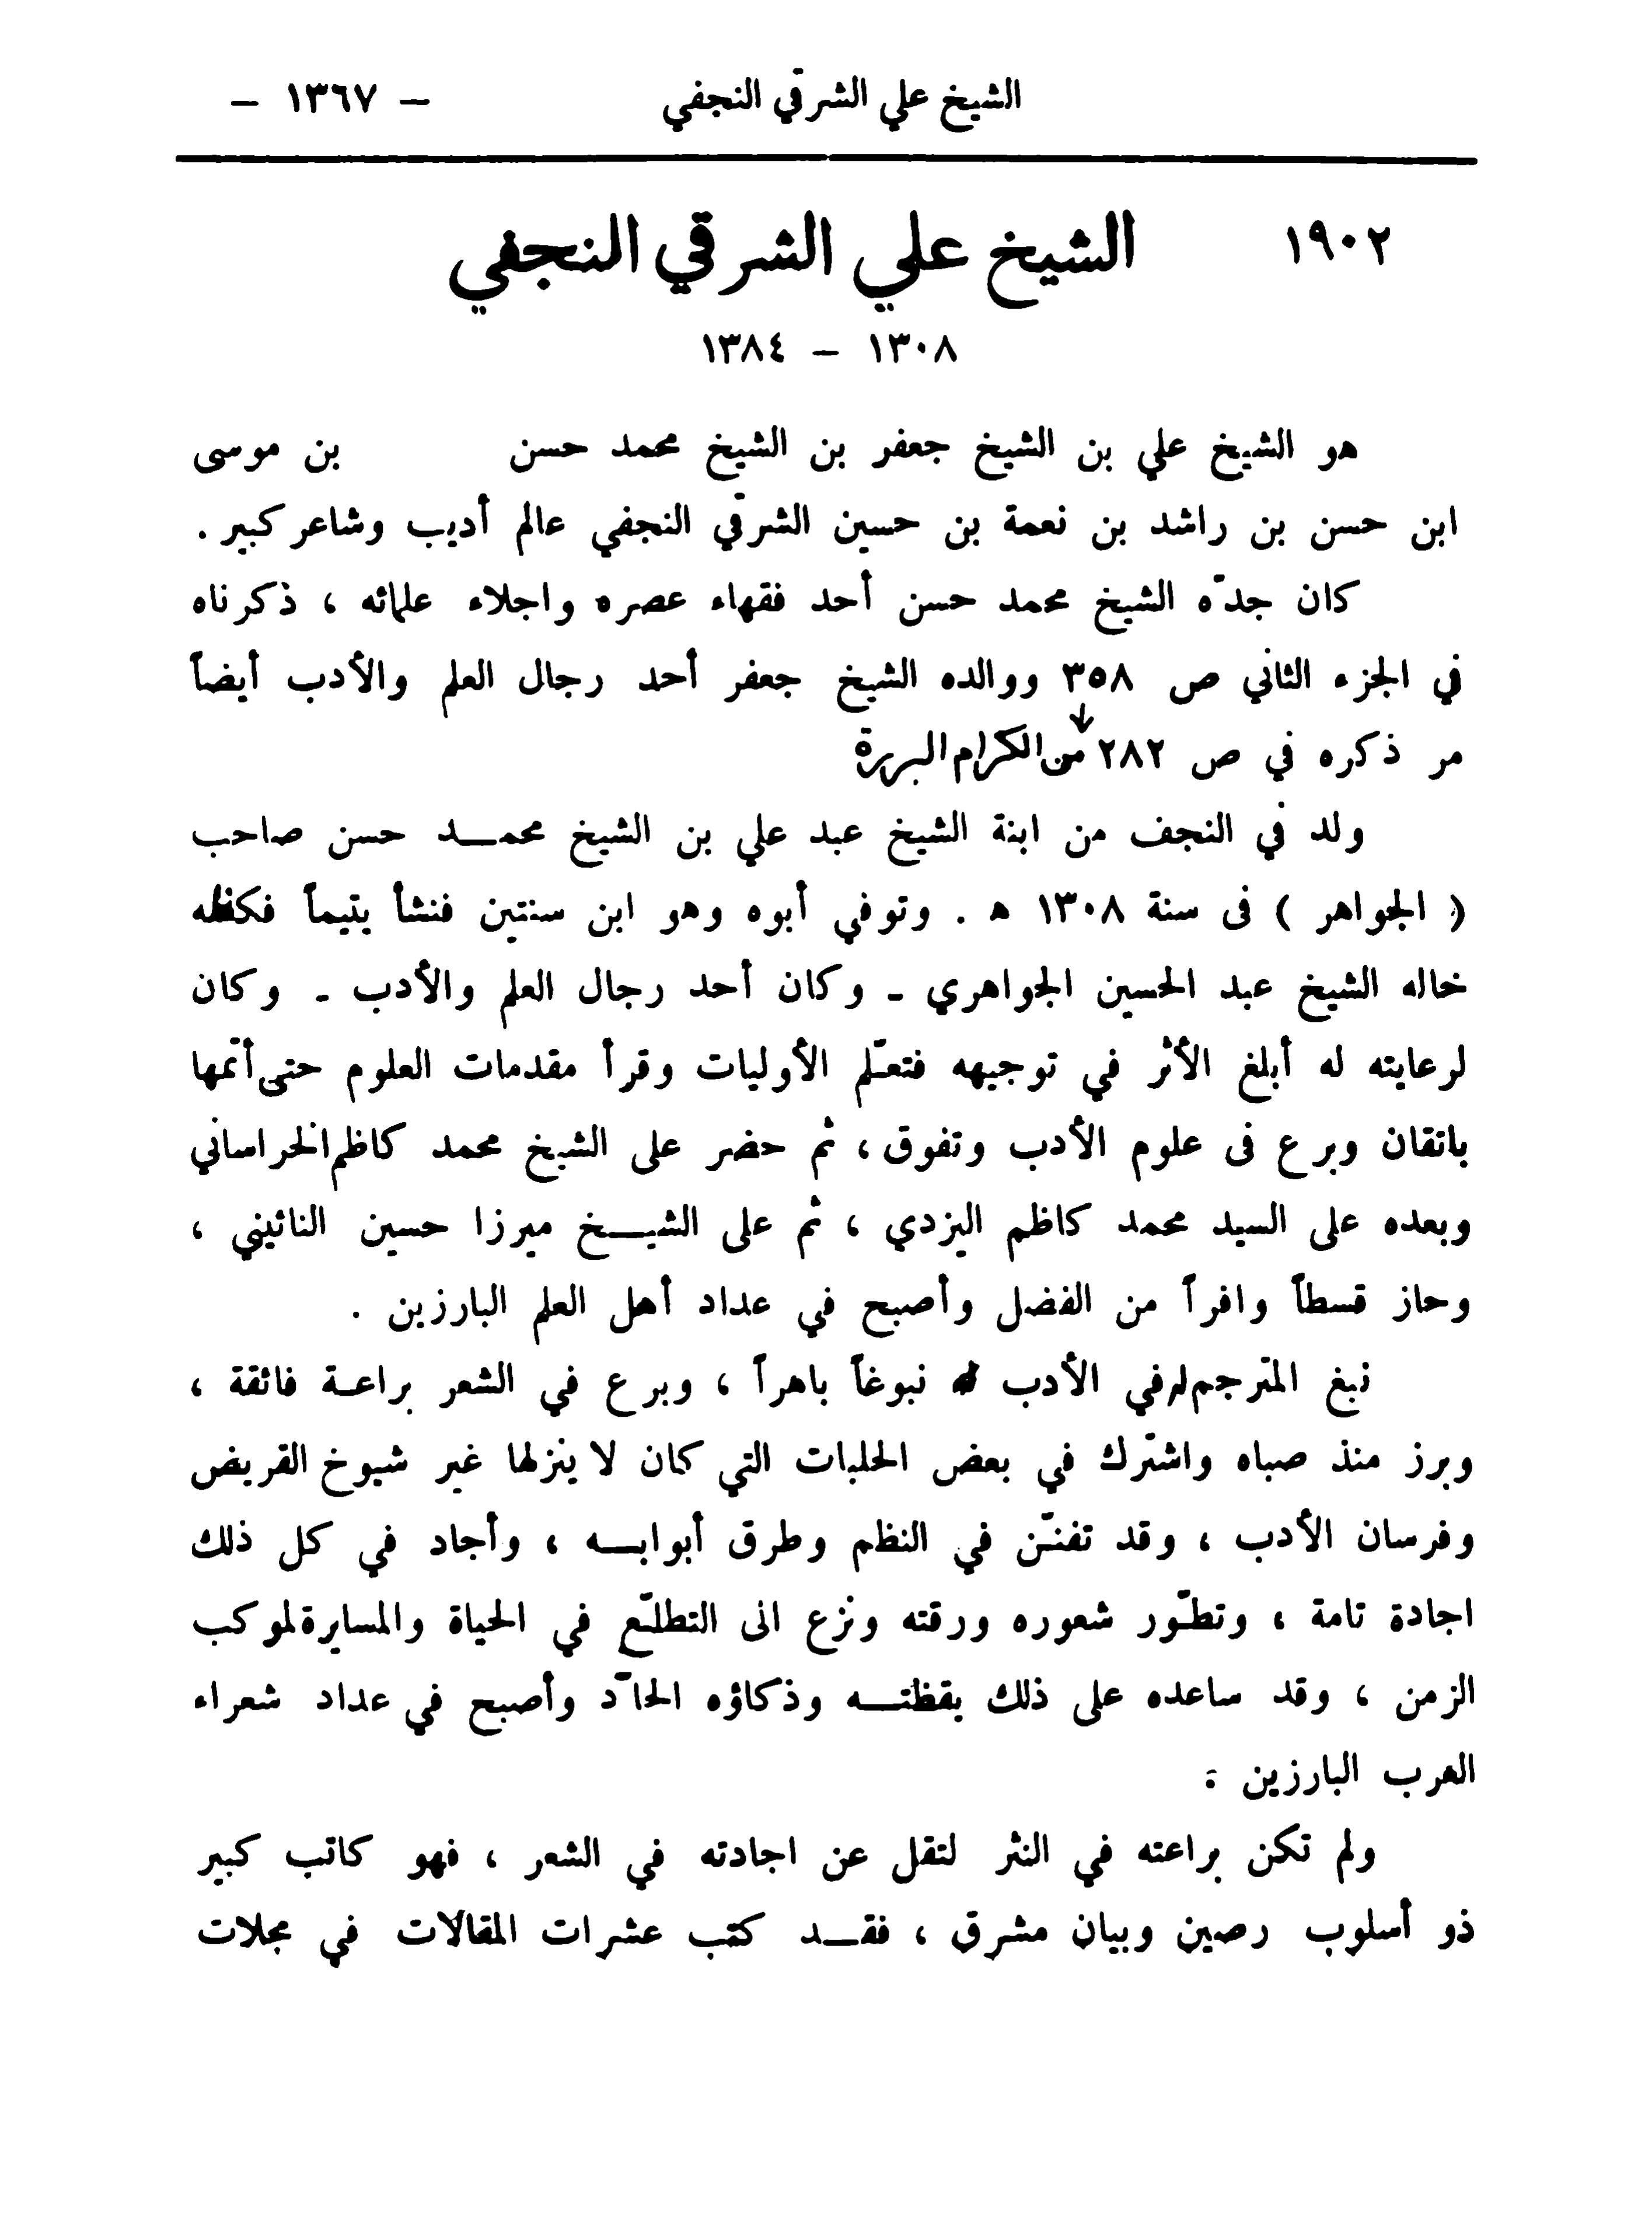 الشيخ علي الشرقي النجفي – ١٣٦٧ –
١٩٠٢ الشيخ علي الشرقي النجفي
١٣٠٨ – ١٣٨٤
هو الشيخ علي بن الشيخ جعفر بن الشيخ محمد حسن بن موسى
ابن حسن بن راشد بن نعمة بن حسين الشرقي النجفي عالم أديب وشاعر كبير .
كان جدّه الشيخ محمد حسن أحد فقهاء عصره واجلاء علمائه ، ذكرناه
في الجزء الثاني ص ٣٥٨ ووالده الشيخ جعفر أحد رجال العلم والأدب أيضاً
مر ذكره في ص ٢٨٢ من الكرام البررة
ولد في النجف من ابنة الشيخ عبد علي بن الشيخ محمـــد حسن صاحب
( الجواهر ) فى سنة ١٣٠٨ ه . وتوفي أبوه وهو ابن سنتين فنشأ يتيماً فكفله
خاله الشيخ عبد الحسين الجواهري ـ وكان أحد رجال العلم والأدب ـ وكان
لرعايته له أبلغ الأثر في توجيهه فتعلّم الأوليات وقرأ مقدمات العلوم حتى أتمها
باتقان وبرع فى علوم الأدب وتفوق ، ثم حضر على الشيخ محمد كاظم الخراساني
وبعده على السيد محمد كاظم اليزدي ، ثم على الشيـــخ ميرزا حسين النائيني ،
وحاز قسطاً وافراً من الفضل وأصبح في عداد أهل العلم البارزين .
نبغ المترجم له في الأدب نبوغاً باهراً ، وبرع في الشعر براعـة فائقة ،
وبرز منذ صباه واشترك في بعض الحلبات التي كان لا ينزلها غير شيوخ القريض
وفرسان الأدب ، وقد تفنّن في النظم وطرق أبوابـــه ، وأجاد في كل ذلك
اجادة تامة ، وتطوّر شعوره ورقته ونزع الى التطلّع في الحياة والمسايرة لموكب
الزمن ، وقد ساعده على ذلك يقظتـــه وذكاؤه الحادّ وأصبح في عداد شعراء
العرب البارزين .
ولم تكن براعته في النثر لتقل عن اجادته في الشعر ، فهو كاتب كبير
ذو أسلوب رصين وبيان مشرق ، فقـــد كتب عشرات المقالات في مجلات